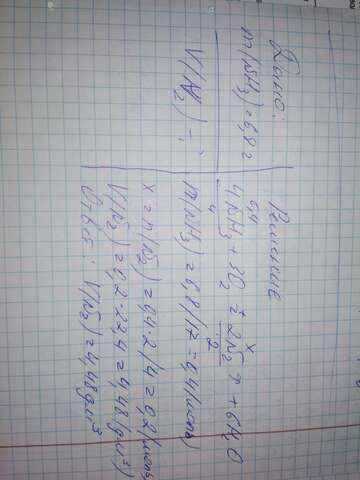 Дано:
m(NH₃)=6,8г
V(N₂) - ?
Решение
0,4 x
4NH₃ + 3O₂ = 2N₂↑ + 6H₂O
4 2
n(NH₃)=6,8/17=0,4(моль)
x=n(N₂)=0,4·2/4=0,2(моль)
V(N₂)=0,2·22,4=4,48(дм³)
Ответ: V(N₂)=4,48дм³